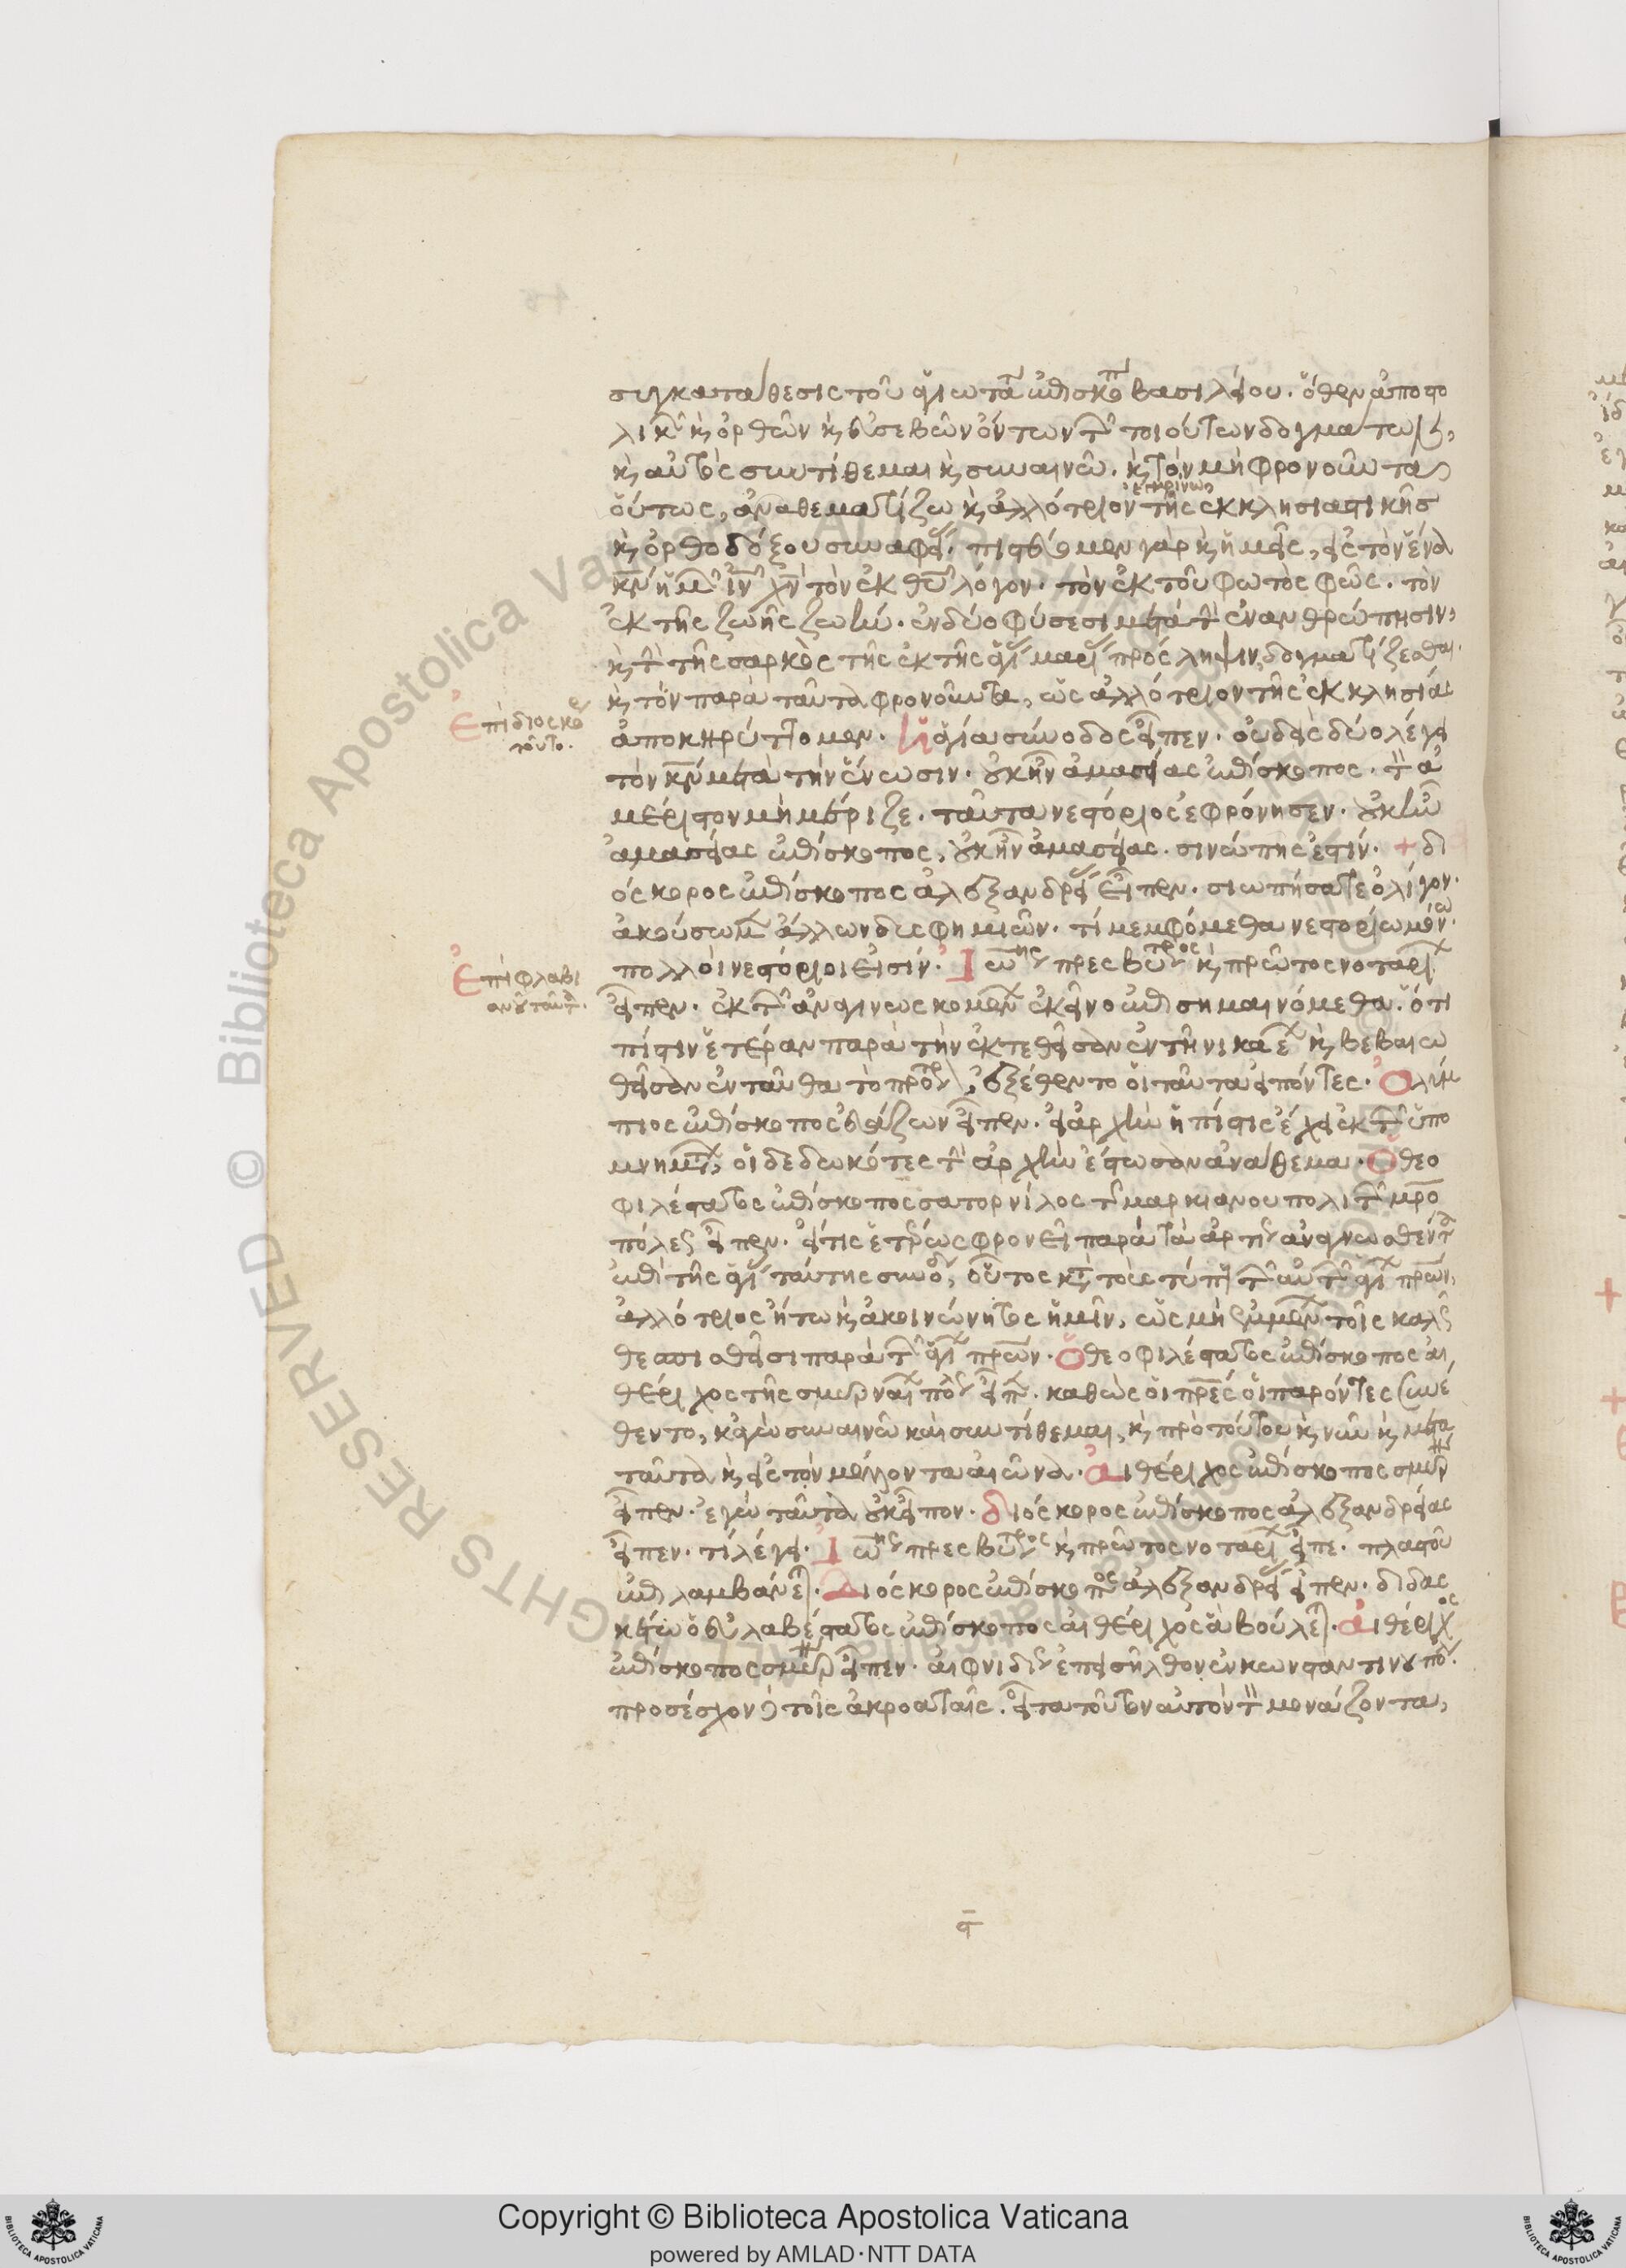 συγκατάθεσις τοῦ ἁγιωτά ἐπισκό βασιλείου. ὅθεν ἀποστο
λικῶν κ ὀρθῶν κ εὐσεβῶν ὄντων τῶν τοιούτων δογμάτων,
κ αὐτὸς συντίθεμαι κ συναινῶ. κ τὸν μὴ φρονοῦντα
οὕτως, ἀναθεματίζω κ ἀλλότριον κρίνω τῆς ἐκκλησιαστικῆς
κ ὀρθοδόξου συναφεί. πιστεύομεν γὰρ κ ἡμεῖς, εἰς τὸν ἕνα
κν ἡμῶν ιν χν τὸν ἐκ θυ λόγον. τὸν ἐκ τοῦ φωτὸς φῶς. τὸν
ἐκ τῆς ζωῆς ζωήν. ἐν δύο φύσεσι μετὰ τὴν ἐνανθρώπησιν,
κ τὴν τῆς σαρκὸς τῆς ἐκ τῆς ἁγί μαρί πρόσληψιν, δογματίζεσθαι.
κ τὸν παρὰ ταῦτα φρονοῦντα, ὡς ἀλλότριον τῆς ἐκκλησίας
ἀποκηρύττομεν. Ἡ ἁγία σύνοδος εἶπεν. οὐδεὶς δύο λέγει
Ἐπὶ διοσκό
τοῦτο.
τὸν κν μετὰ τὴν ἕνωσιν. οὐκ ἦν ἀμασείας ἐπίσκοπος. τὸν ἀ
μέριστον μὴ μέριζε. ταῦτα νεστόριος ἐφρόνησεν. οὐκ ἦν
ἀμασείας ἐπίσκοπος, οὐκ ἦν ἀμασείας. σινώπης ἐστίν. + δι
όσκορος ἐπίσκοπος ἀλεξανδρεί εἶπεν. σιωπήσατε ὀλίγον.
ἀκούσωμ ἄλλων δυσφημιῶν. τί μεμφόμεθα νεστορίω μόνω.
πολλοὶ νεστόριοι εἰσίν. Ἰωνης πρεσβύτρος κ πρῶτος νοταρί
Ἐπὶ φλαβι
ανοῦ ταῦτ.
εἶπεν. ἐκ τῶν ἀνεγινωσκομέν ἐκεῖνο ἐπισημαινόμεθα. ὅτι
πίστιν ἑτέραν παρὰ τὴν ἐκτεθεῖσαν ἐν τῆ νικαέ κ βεβαιω
θεῖσαν ἐνταῦθα τὸ πρότερ, ἐξέθεντο οἱ ταῦτα εἰπόντες. Ὀλύμ
πιος ἐπίσκοπος εὐάζων εἶπεν. εἰ ἀρχὴν ἡ πίστις ἔχει ἐκ τῶν ὑπο
μνημτ, οἱ δεδωκότες τὴν ἀρχὴν ἔστωσαν ἀνάθεμα. Ὁ θεο
φιλέστατος ἐπίσκοπος σατορνίλος τῆς μαρκιανουπολιτῶν μρο
πόλεως εἶπεν. εἴ τις ἑτέρως φρονεῖ παρὰ τὰ ἄρτι ἀναγνωσθέντα
ἐπὶ τῆς ἁγί ταύτης συνόδ, οὗτος κτ τοὺς τύπους τῶν αὐτῶν ἁγί πρων,
ἀλλότριος ἤτω κ ἀκοινώνητος ἡμῖν, ὡς μὴ ἐμμέν τοῖς καλῶς
θεασισθεῖσι παρὰ τῶν ἁγί πρων. Ὁ θεοφιλέστατος ἐπίσκοπος αἰ
θέριχος τῆς σμυρναί πόλ εἶπ. καθὼς οἱ πρες οἱ παρόντες συνέ
θεντο, κἀγὼ συναινῶ καὶ συντίθεμαι, κ πρὸ τούτου κ νῦν κ μετὰ
ταῦτα κ εἰς τὸν μέλλοντα αἰῶνα. Αἰθέριχος ἐπίσκοπος σμύρν
εἶπεν. ἐγὼ ταῦτα οὐκ εἶπον. διόσκορος ἐπίσκοπος ἀλεξανδρείας
εἶπεν. τί λέγει. Ἰωνης πρεσβύτρος κ πρῶτος νοταρί εἶπε. πλαστοῦ
ἐπιλαμβάνεται. Διόσκορος ἐπίσκοπος ἀλεξανδρεί εἶπεν. διδας
κέτω ὁ εὐλαβέστατος ἐπίσκοπος αἰθέριχος ἃ βούλεται. Αἰθέριχος
ἐπίσκοπος σμύρν εἶπεν. αἰφνίδι ἐπεισῆλθον ἐν κωνσταντινουπόλ.
προσέσχον τοῖς ἀκροαταῖς. εἶτα τοῦτον αὐτὸν τὸν μονάζοντα,